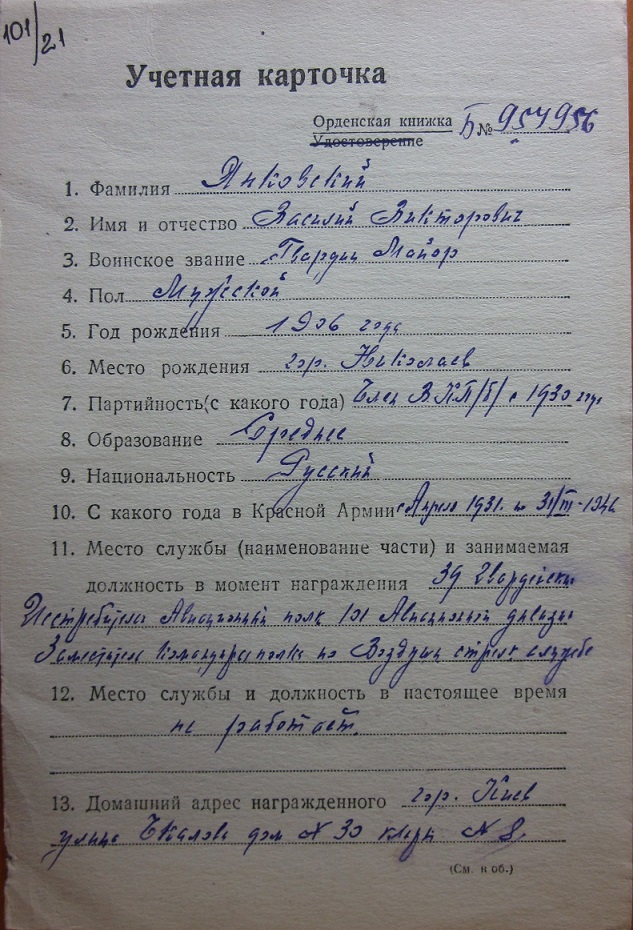 101/21
Учетная карточка
Орденская книжка Б № 957956
Удостоверение
1. Фамилия Янковский
2. Имя и отчество Василий Викторович
3. Воинское звание Гвардии Майор
4. Пол Мужской
5. Год рождения 1906 года
6. Место рождения гор. Николаев
7. Партийность (с какого года) Член ВКП/б/ с 1930 года
8. Образование Среднее
9. Национальность Русский
10. С какого года в Красной Армии с Апреля 1931. по 31/III-1946
11. Место службы (наименование части) и занимаемая
должность в момент награждения 39 Гвардейский
Истребительн Авиационный полк Авиационной дивизии
Заместитель командира полка по Воздушн стрелк службе
12. Место службы и должность в настоящее время
не работает.
13. Домашний адрес награжденного гор. Киев
улица Чкалова дом N 30 кварт N 8.
(См. н об.)